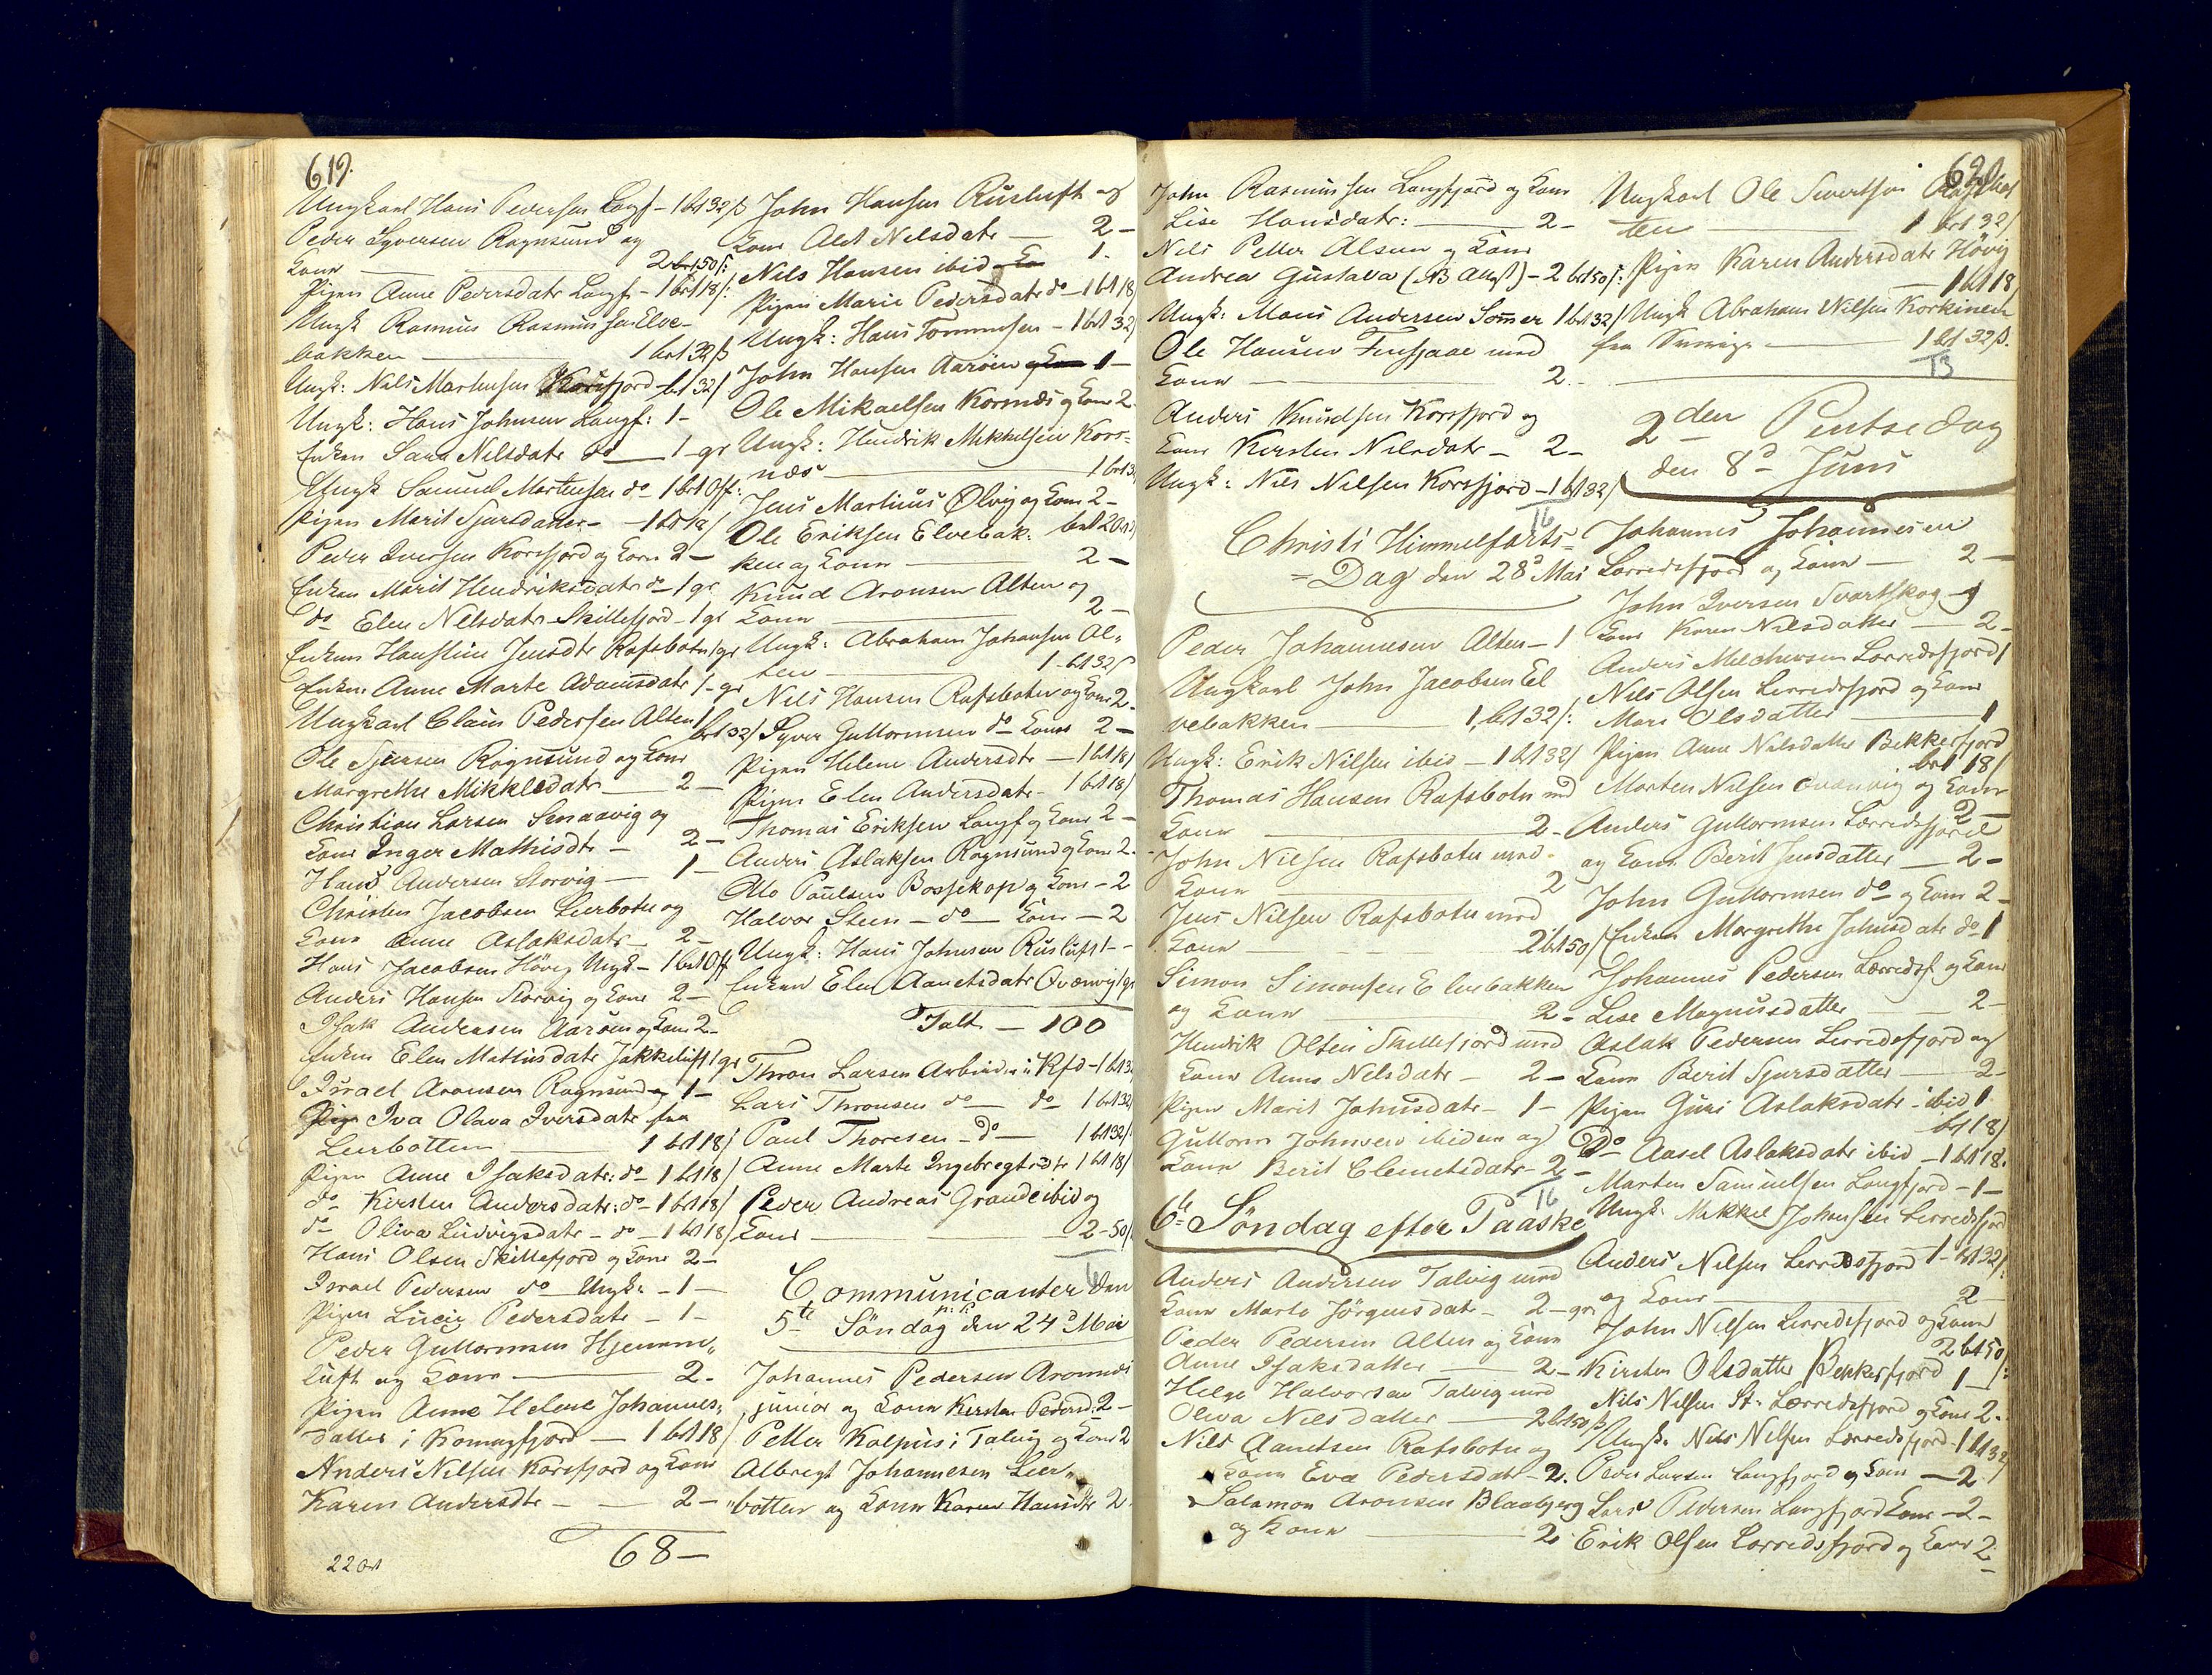 619.
Ungkarl Hans Pedersen Langf - 1 bt 32 ß
Peder Syversen Rognsund og
Kone 2 bt 50 ß:
Pigen Anne Pedersdatr Langf - 1 bt 18/:
Ungk Rasmus Rasmussen Elve-
bakken 1 bt 32 ß
Ungk: Nils Mortensen Korsfjord - bt 32/
Ungk: Hans Johnsen Langf: 1-
Enken Sara Nilsdatr do 1 - gr
Ungk Samuel Mortensen do - 1 bt Off:
Pigen Marit Sjursdatter - 1 bt 18/
Peder Iversen Korsfjord og Kone 2 -
Enken Marit Hendriksdatr do - 1 gr
do Elen Nilsdatr Skillefjord - 1 gr
Enken Hanstine Jensdtr Rafsbotn 1 gr
Enken Anne Marte Adamsdatr 1 - gr
Ungkarl Claus Pedersen Alten 1
bt 32/
Ole Sjursen Rognsund og Kone
Margrethe Mikkelsdatr 2 -
Christian Larsen Smaavig og
Kone Inger Mathisdtr - 2 -
Hans Andersen Storvig - 1 -
Christen Jacobsen Leerbotn og
Kone Anne Aslaksdatr - 2 -
Hans Jacobsen Høvig Ungk - 1 bt Off
Anders Hansen Storvig og Kone 2 -
Isak Andersen Aarøen og Kone 2 -
Enken Elen Mathisdatr Jakkeluft 1 gr
Israel Aronsen Rognsund 1 -
Pige Iva Olava Iversdatr fra
Leerbotten 1 bt 18/
Pigen Anne Isaksdatr: do 1 bt 18/
do Kirsten Andersdatr: do - 1 bt 18/
do Oliva Ludvigsdatr - do - 1 bt 18/
Hans Olsen Skillefjord og Kone 2 -
Israel Pedersen do Ungk: - 1 -
Pigen Lucie Pedersdatr - 1 -
Peder Guttormsen Hjemme„
luft og Kone 2 -
Pigen Anne Helene Johannes„
datter i Komagfjord - 1 bt 18/
Anders Nilsen Korsfjord og Kone
Karen Andersdtr - 2 -
68 -
22 Ort
John Hansen Rusluft og
Kone Alet Nilsdatr - 2 -
Nils Hansen ibid 1.
Pigen Marie Pedersdatr do - 1 bt 18/
Ungk: Hans Tommesen - 1 bt 32/
John Hansen Aarøen 1 -
Ole Mikaelsen Korsnæs og Kone 2
Ungk: Hendrik Mikkelsen Kors=
næs 1 bt 3
Jens Martinus Ølvig og Kone 2 -
Ole Eriksen Elvebak:
ken og Kone 2 -
Knud Aronsen Alten og
Kone 2 -
Ungk: Abraham Johansen Al„
ten 1 - bt 32 ß
Nils Hansen Rafsbotn og Kone 2 -
Syver Guttormsen do Kone 2 -
Pigen Helene Andersdtr - 1 bt 18/
Pigen Elen Andersdatr - 1 bt 18/
Thomas Eriksen Langf og Kone 2 -
Anders Aslaksen Rognsund og Kone 2.
Ole Paulsen Bossekop og Kone - 2
Halvor Steen - do - Kone - 2
Ungk: Hans Johnsen Rusluft 1 -
Enken Elen Aanetsdatr Qvænvig 1 gr
Talt - 100
Thron Larsen Arbeider i Kfd - 1 bt 3
Lars Thronsen do - do 1 bt 32
Paul Thoresen - do - 1 bt 32/
Anne Marte Ingebregtsdtr 1 bt 18/
Peder Andreas Grande ibid og
Kone 2 - 50/
Communicanter den
5te Søndag p: P: den 24d Mai
Johannes Pedersen Aronnæs
junior og Kone Kirsten Pedersd: 2 -
Petter Kolpus i Talvig og Kone 2
Albregt Johannesen Leer„
„botten og Kone Karen Hansdtr 2
620
John Rasmussen Langfjord og Kone
Lise Hansdatr: 2 -
Nils Petter Olsen og Kone
Andrea Gustava (NB Abs) - 2 bt 50 ß:
Ungk: Mons Andersen Somer 1 bt 32/
Ole Hansen med
Kone 2. -
Anders Knudsen Korsfjord og
Kone Kirsten Nilsdatr - 2 -
Ungk: Nils Nilsen Korsfjord - 1 bt 32/
16
Christi Himmelfarts=
=Dag den 28d Mai
Peder Johannesen Alten - 1
Ungkarl John Jacobsen El
vebakken 1, bt 32/:
Ungk: Erik Nilsen ibid - 1 bt 32/
Thomas Hansen Rafsbotn med
Kone 2 -
John Nilsen Rafsbotn med
Kone 2
Jens Nilsen Rafsbotn med
Kone 2 bt 50/
Simon Simonsen Elvebakken
og Kone 2 -
Hendrik Olsen Skillefjord med
Kone Anne Nilsdatr - 2 -
Pigen Marit Johnsdatr - 1 -
Guttorm Johnsen ibidem og
Kone Berit Clemetsdatr - 2 -
16
6te Søndag efter Paaske
Anders Andersen Talvig med
Kone Marte Jørgensdatr - 2 - gr
Peder Pedersen Alten og Kone
Anne Isaksdatter 2 -
Helge Halvorsen Talvig med
Oliva Nilsdatter 2 bt 50 ß/
Nils Aanetsen Rafsbotn og
Kone Eva Pedersdatr - 2.
Salamon Aronsen Blaabjerg
og Kone 2.
Ungkarl Ole Sivertsen Rafsbot
ten 1 bt 32/
Pigen Karen Andersdatr Høvig
- 1 bt 18
Ungk Abraham Nilsen Korkinen
fra Sverige 1 bt 32 ß.
13
2den Pintse dag
den 8d Juni
Johannes Johannesen
Lerredsfjord og Kone - 2 -
John Iversen Svartskog og
Kone Karen Nilsdatter - 2 -
Anders Melchersen Lerredsfjord 1
Nils Olsen Lerredsfjord og Kone
Mari Olsdatter 1
Pigen Anne Nilsdatter Bekkerfjord
bt 18/
Morten Nilsen Qvænvig og Kone
2 -
Anders Guttormsen Lerredsfjord
og Kone Berit Jensdatter - 2 -
John Guttormsen do og Kone 2 -
Enken Margrethe Johnsdatr do 1
Johannes Pedersen Lerredsf. og Kone
Lise Magnusdatter 2 -
Aslak Pedersen Lerredsfjord og
Kone Berit Sjursdatter 2 -
Pigen Guri Aslaksdatr - ibid 1.
bt 18/
Do Aasel Aslaksdatr ibid - 1 bt 18.
Morten Samuelsen Langfjord - 1 -
Ungk. Mikkel Johansen Lerredsfjord
1 - bt 32/:
Anders Nilsen Lerredsfjord
og Kone 2 -
John Nilsen Lerredsfjord og Kone
2 bt 50
Kirsten Olsdatter Bekkerfjord 1 -
Nils Nilsen St. Lerredsfjord og Kone 2 -
Ungk. Nils Nilsen Lerredsfjord - 1 bt 32/
Peder Larsen Langfjord og Kone - 2
Lars Pedersen Langfjord Kone - 2 -
Erik Olsen Lerredsfjord og Kone 2 -